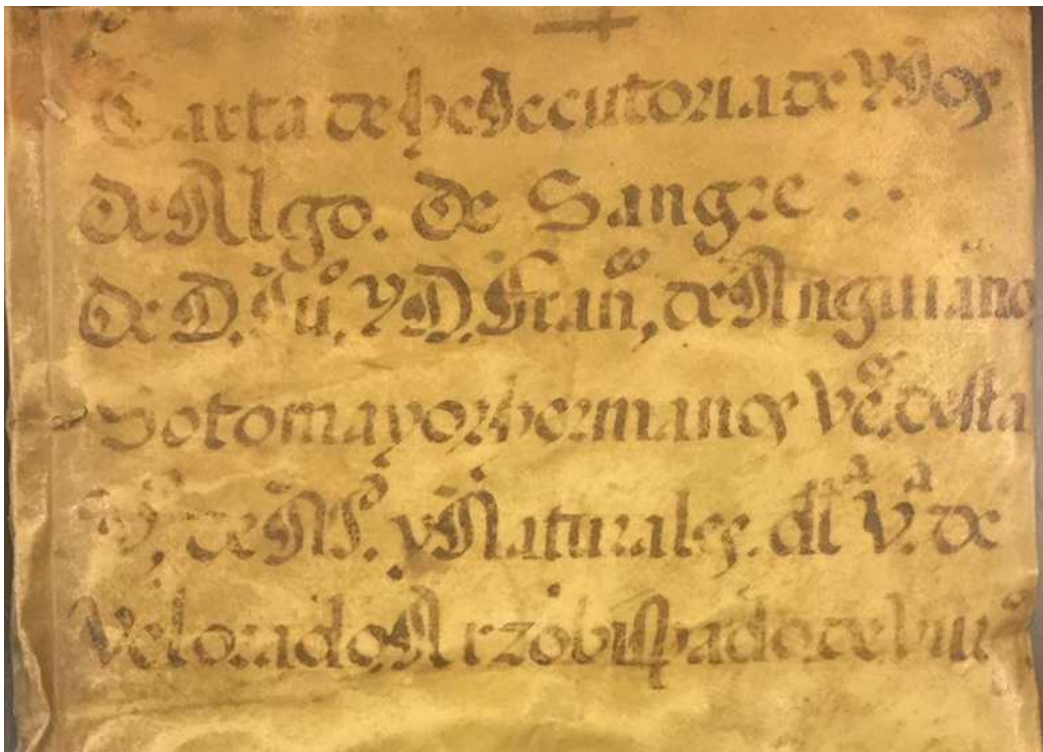 Carta de heJecutoria de YJos
de Algo. de Sangre :·
de D. Ju.º Y D. Fran.co, de Anguiano
Sotomayor hermanos Ve.s desta
de M.º y Naturales. dla V.a de
Velorado Arzobispado de bur.s